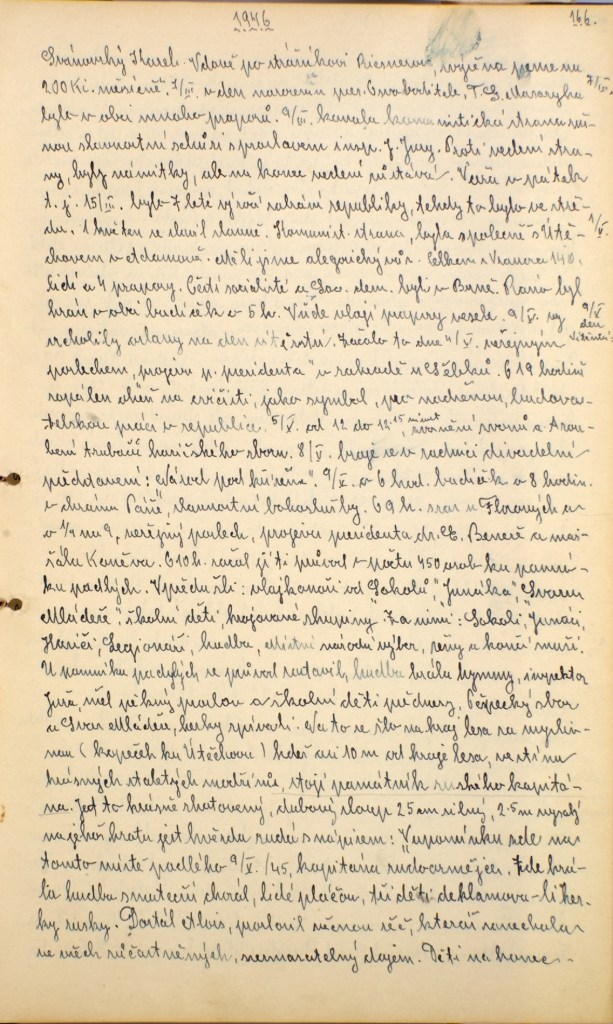 1946
166.
Svánovský Karel. Vdově po strážníkovi Riesnerovi, vyjednána penze na
200 Kč. měsíčně. 7/III. v den narození pres. Osvoboditele, T. G. Masaryka 7/III.
bylo v obci mnoho praporů. 9/III. konala komunistická strana
slavnostní schůzi s proslovem insp. J. Jury. Proti vedení stra-
ny, byly námitky, ale na konec vedení zůstává. Včera v pátek
t. j. 15/III. bylo 7 leté výročí zabrání republiky, tehdy to bylo ve stře-
du. 1 květen se slavil slavně. Komunist. strana, byla společně s Útě- 1/V.
chovem v oddanově. Měli jsme alegorický vůz. Celkem s Vranova 140.
lidí a 4 prapory. Čeští socialisté a Soc. dem. byli v Brně. Ráno byl
hrán v obci budíček o 5 h. Všude vlají prapory vesele. 9/V. vy 9/V den vítězství.
vrcholily oslavy na den vítězství. Začalo to dne 4/V. veřejným
poslechem, projevu p. presidenta v zahradě u Sležků. O 19 hodině
zapálen oheň na cvičišti, jako symbol, pro nadšenou, budova-
telskou práci v republice. 5/V. od 12 do 12.15 minut zvonění zvonů a trou-
bení trubačů hasičského sboru. 8/V. hraje se v radnici divadelní
představení: "Návod pod kůrěna". 9/V. o 6 hod. budíček o 8 hodin.
v chrámu Páně, slavnostní bohoslužby. O 9 h. sraz u Floriánových a
o 1/4 na 9, veřejný poslech, projevu presidenta dr. E. Beneše a mar-
šála Koněva. O 10 h. začal jíti průvod v počtu 450 osob ku pomní-
ku padlých. V předu šli: vlajkonoši od "Sokolů", "Junáka", "Svazu
Mládeže", školní děti, krojované skupiny. Za nimi: Sokoli, Junáci,
Hasiči, Legionáři, hudba, Místní národní výbor, ženy a končí muži.
U pomníku padlých se průvod zastavil, hudba hrála hymny, inspektor
Jura, měl pěkný proslov a školní děti přednesy, Pěvecký sbor
a Svaz Mládeže, hezky zpívali. Na to se šlo na kraj lesa na mysliv-
nou (kopeček ku Útěchovu) kdež asi 10 m od kraje lesa, ve stínu
krásných stoletých modřínů, stojí památník ruského kapitá-
na. Jest to krásně zhotovený, dubový sloup 25 cm silný, 2.5 m vysoký
na jehož hrotu jest hvězda rudá s nápisem: "Vzpomínku zde na
tomto místě padlého 9/V. /45, kapitána rudoarmějce. Zde hrá-
la hudba smuteční chorál, lidé pláčou, tři děti deklamova-li hez-
ky rusky. Dostál Alois, proslovil věcnou řeč, kteráž zanechala
ve všech zúčastněných, nesmazatelný dojem. Děti na konec